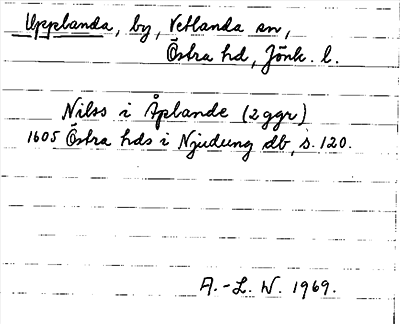 Upplanda, by, Vetlanda sn,
Östra hd, Jönk. l.
Nilss i Åplande (2ggr)
1605 Östra hds i Njudung db, s. 120.
A.-L. W. 1969.